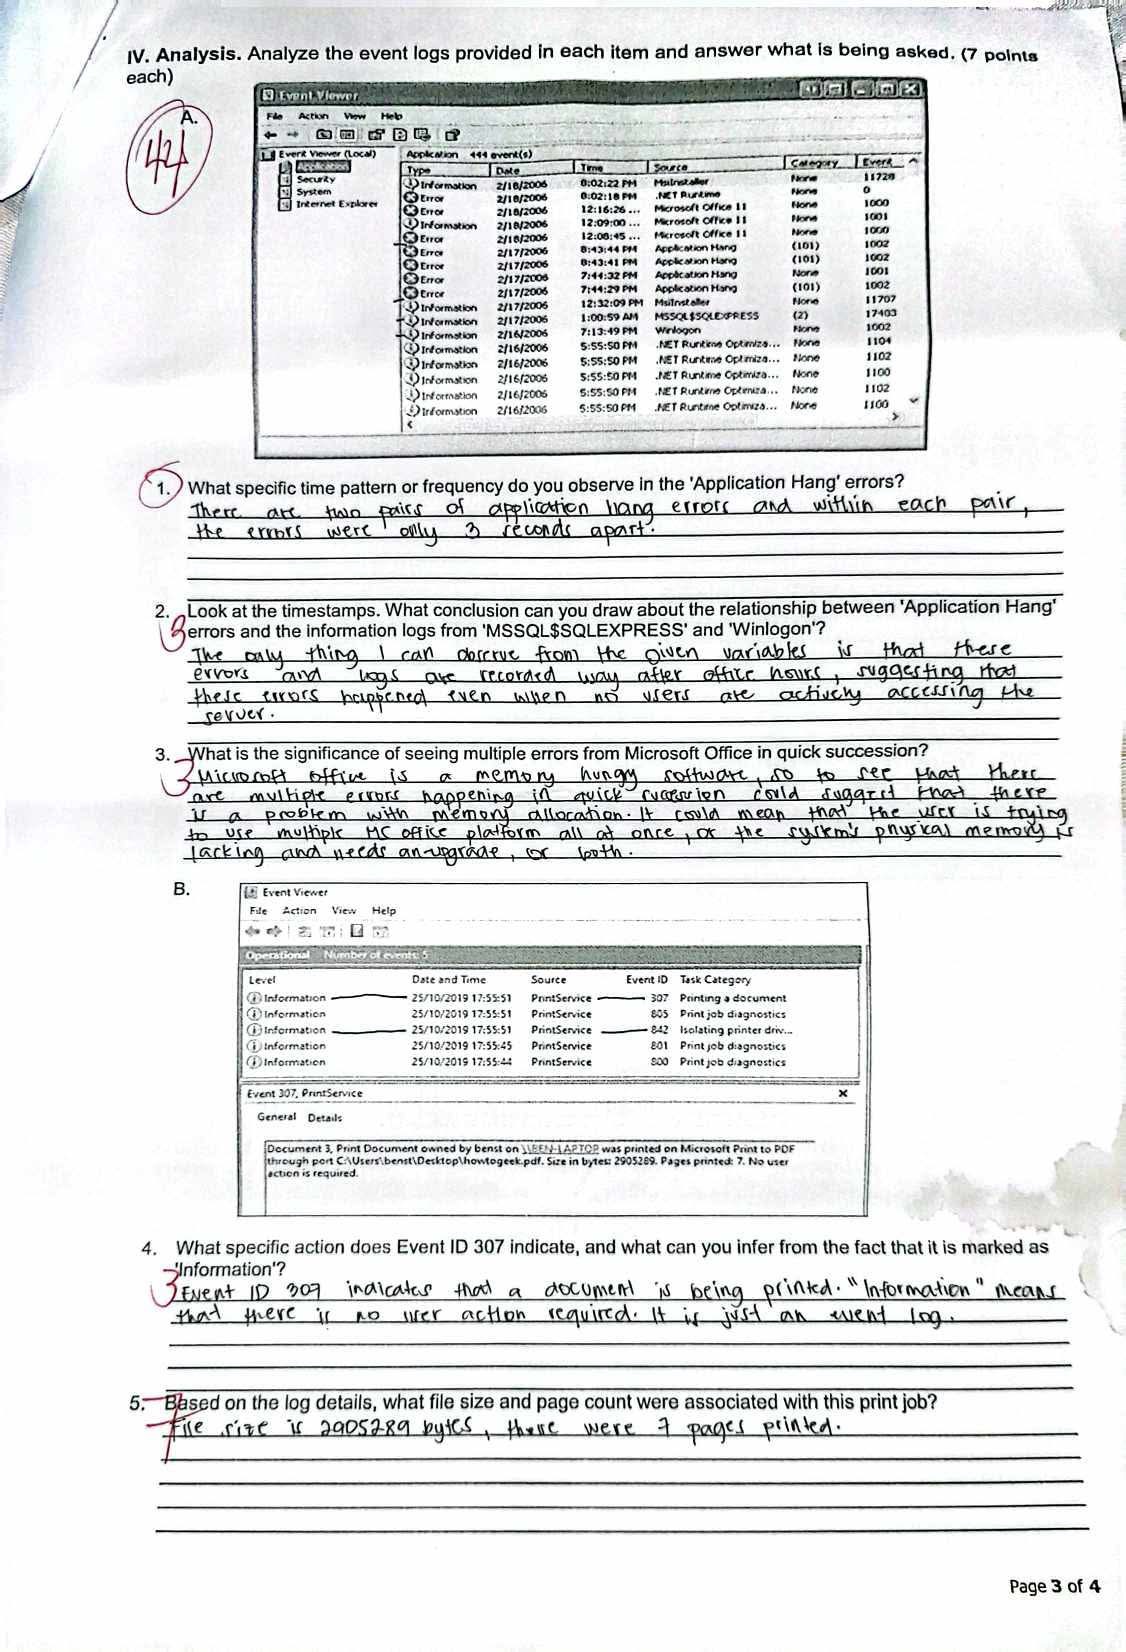 IV. Analysis. Analyze the event logs provided in each item and answer what is being asked. (7 points
each)
A.
44
Event Viewer
File Action View Help
Event Viewer (Local)
Security
System
Internet Explorer
Application 444 event(s)
Type Date Time Source Category Event
Information 2/18/2006 8:02:22 PM MsiInstaller None 11728
Error 2/18/2006 8:02:18 PM .NET Runtime None 0
Error 2/18/2006 12:16:26 ... Microsoft Office 11 None 1000
Information 2/18/2006 12:09:00 ... Microsoft Office 11 None 1001
Error 2/18/2006 12:08:45 ... Microsoft Office 11 None 1000
Error 2/17/2006 8:43:44 PM Application Hang (101) 1002
Error 2/17/2006 8:43:41 PM Application Hang (101) 1002
Error 2/17/2006 7:44:32 PM Application Hang None 1001
Error 2/17/2006 7:44:29 PM Application Hang (101) 1002
Information 2/17/2006 12:32:09 PM MsiInstaller None 11707
Information 2/17/2006 1:00:59 AM MSSQL$SQLEXPRESS (2) 17403
Information 2/16/2006 7:13:49 PM Winlogon None 1002
Information 2/16/2006 5:55:50 PM .NET Runtime Optimiza... None 1104
Information 2/16/2006 5:55:50 PM .NET Runtime Optimiza... None 1102
Information 2/16/2006 5:55:50 PM .NET Runtime Optimiza... None 1100
Information 2/16/2006 5:55:50 PM .NET Runtime Optimiza... None 1102
Information 2/16/2006 5:55:50 PM .NET Runtime Optimiza... None 1100
1. What specific time pattern or frequency do you observe in the 'Application Hang' errors?
There are two pairs of application hang errors and within each pair,
the errors were only 3 seconds apart.
2. Look at the timestamps. What conclusion can you draw about the relationship between 'Application Hang'
3 errors and the information logs from 'MSSQL$SQLEXPRESS' and 'Winlogon'?
The only thing I can observe from the given variables is that these
errors and logs are recorded way after office hours, suggesting that
these errors happened even when no users are actively accessing the
server.
3. What is the significance of seeing multiple errors from Microsoft Office in quick succession?
3 Microsoft office is a memory hungy software, so to see that there
are multiple errors happening in quick succession could suggest that there
is a problem with memory allocation. It could mean that the user is trying
to use multiple MS office platform all at once, or the system's physical memory is
lacking and needs an upgrade, or both.
B.
Event Viewer
File Action View Help
Operational Number of events: 5
Level Date and Time Source Event ID Task Category
Information 25/10/2019 17:55:51 PrintService 307 Printing a document
Information 25/10/2019 17:55:51 PrintService 805 Print job diagnostics
Information 25/10/2019 17:55:51 PrintService 842 Isolating printer driv...
Information 25/10/2019 17:55:45 PrintService 801 Print job diagnostics
Information 25/10/2019 17:55:44 PrintService 800 Print job diagnostics
Event 307, PrintService
General Details
Document 3, Print Document owned by benst on \\BEN-LAPTOP was printed on Microsoft Print to PDF
through port C:\Users\benst\Desktop\howtogeek.pdf. Size in bytes: 2905289. Pages printed: 7. No user
action is required.
4. What specific action does Event ID 307 indicate, and what can you infer from the fact that it is marked as
'Information'?
3 Event ID 307 indicates that a document is being printed. "Information" means
that there is no user action required. It is just an event log.
5. Based on the log details, what file size and page count were associated with this print job?
File size is 2905289 bytes, there were 7 pages printed.
Page 3 of 4